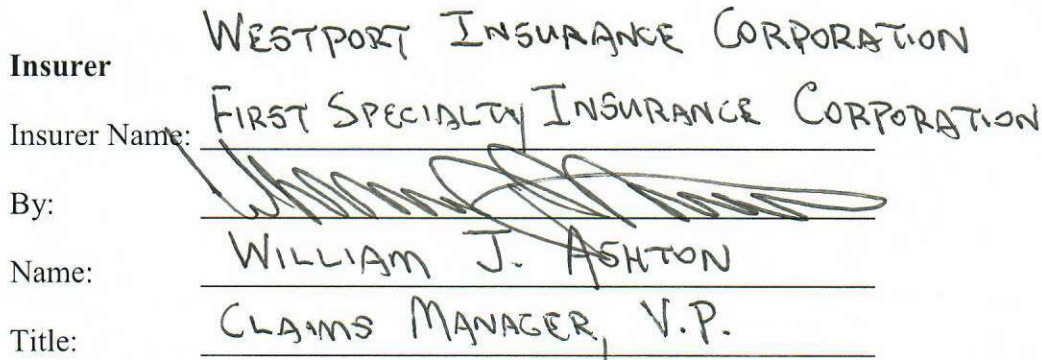 WESTPORT INSURANCE CORPORATION
Insurer
Insurer Name: FIRST SPECIALTY INSURANCE CORPORATION
By:
Name: WILLIAM J. ASHTON
Title: CLAIMS MANAGER, V.P.